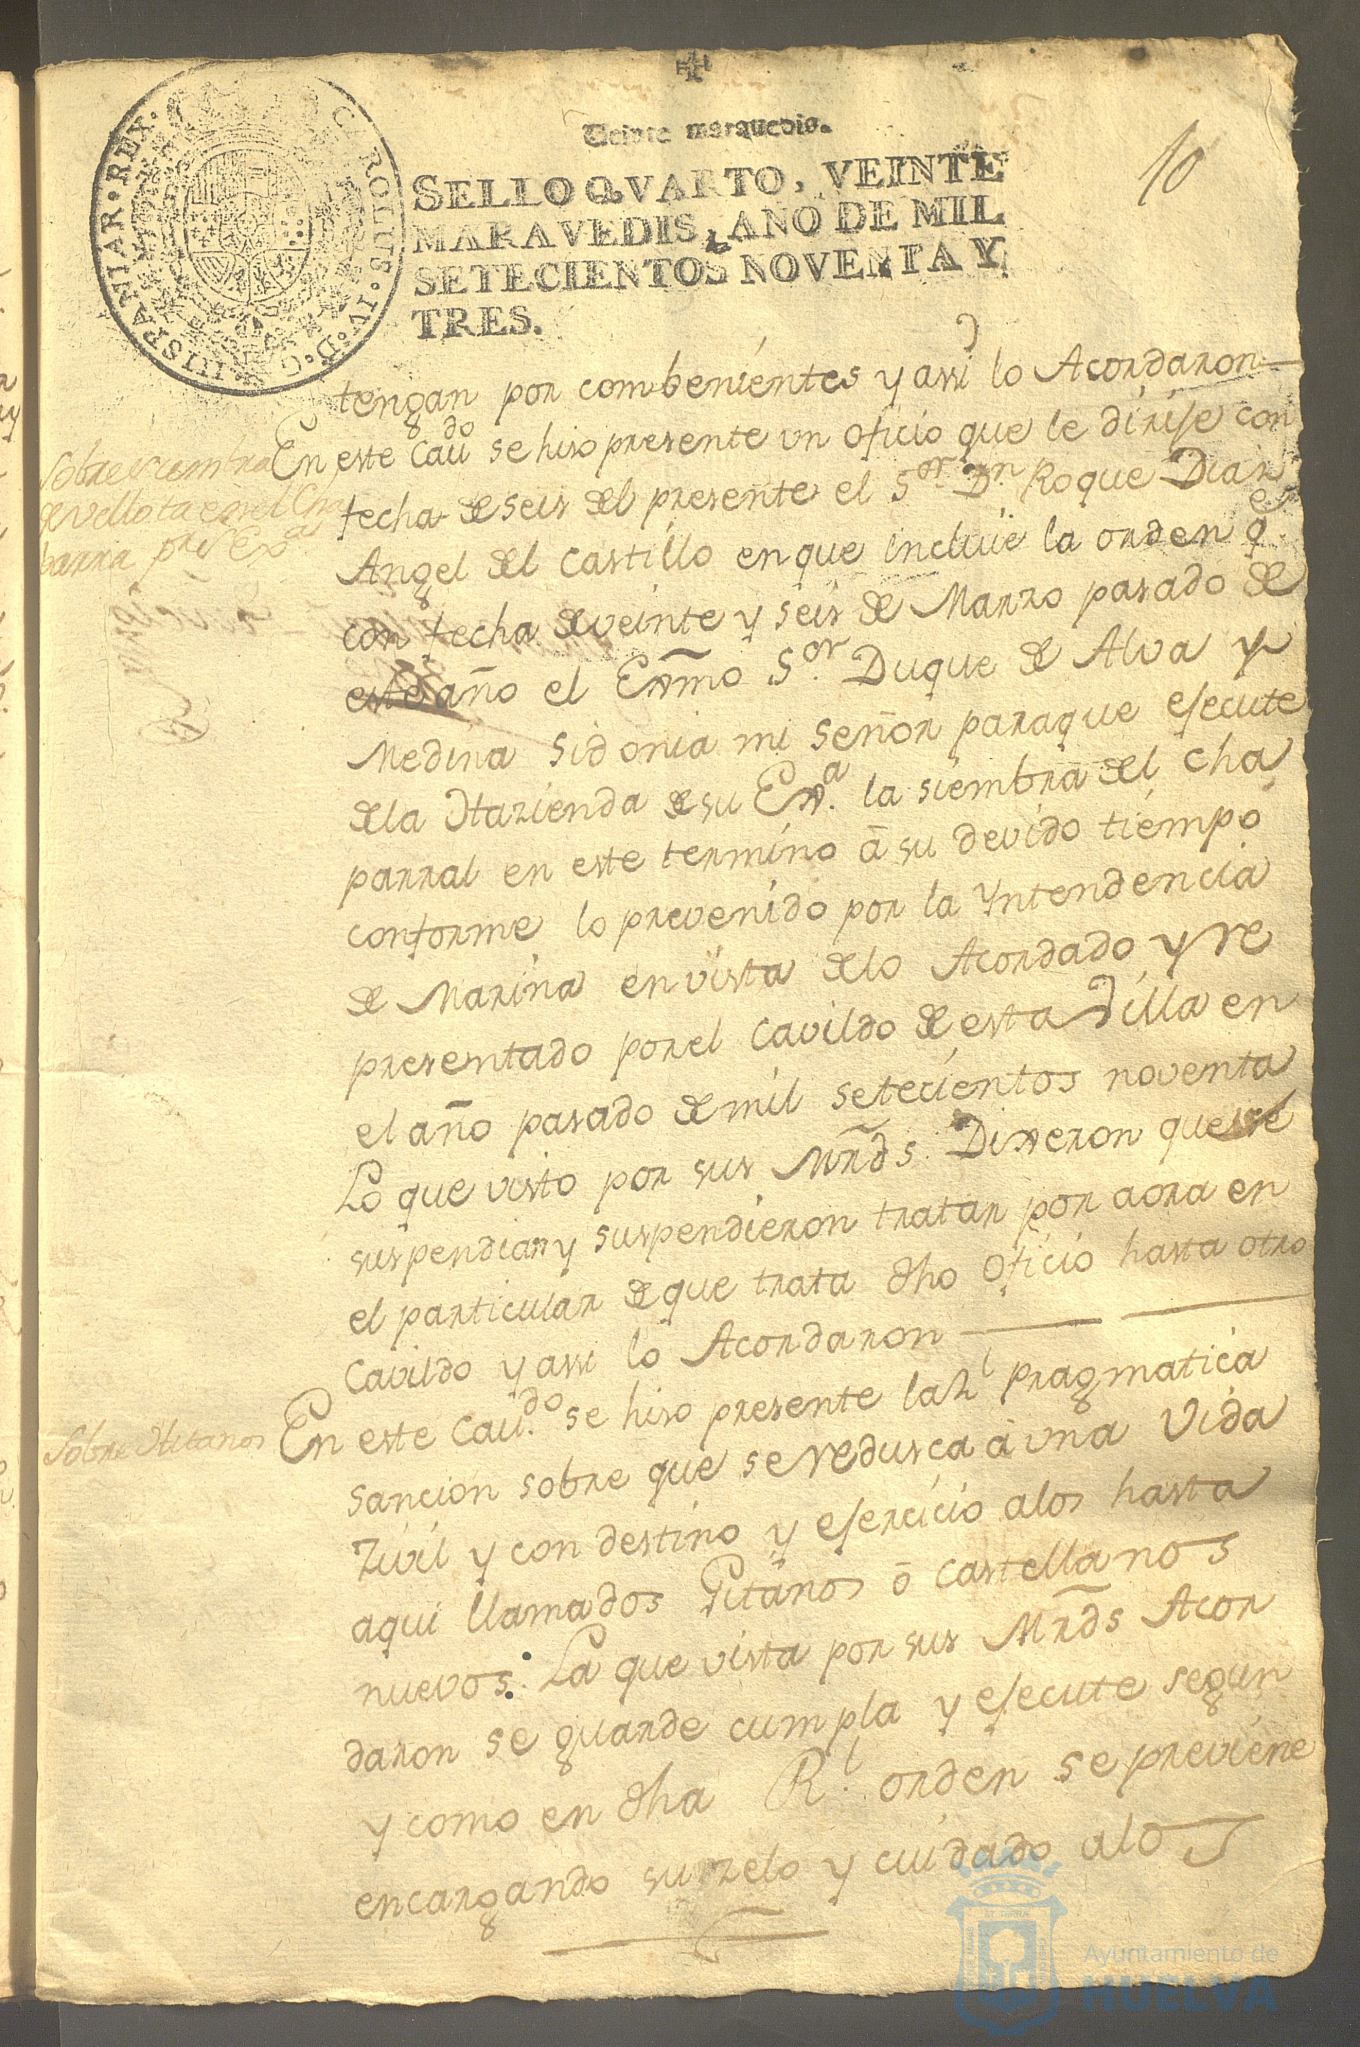 Veinte maravedis.
SELLO QVARTO, VEINTE
MARAVEDIS, AÑO DE MIL
SETECIENTOS NOVENTA Y
TRES.
CAROLUS. IV. D. G. HISPANIAR. REX.
10
tengan por combenientes y assi lo Acordaron
Sobre siembra
de vellota en el Cha
parra pr S Exa
En este Caudo se hiso presente vn oficio que le dirije con
fecha de seis del presente el Sor. Dn Roque Diaz
Angel del Castillo en que incluie la orden qe
con fecha de veinte y seis de Marzo pasado de
este año el Exmo Sor. Duque de Alva y
Medina Sidonia mi señor paraque ejecute
dela Hazienda de su Exa. la siembra del Cha
parral en este termino â su devido tiempo
conforme lo prevenido por la Yntendencia
de Marina en vista delo Acordado y re
presentado porel Cavildo de esta Villa en
el año pasado de mil setecientos noventa
Lo que visto por sus Mrds. Dixeron que se
suspendian y suspendieron tratar por aora en
el particular de que trata dho oficio hasta otro
Cavildo y assi lo Acordaron
Sobre Hitanos
En este Caudo. se hiso presente la Rl pragmatica
sancion sobre que se redusca â una Vida
Zivil y con destino y ejercicio alos hasta
aqui llamados Gitanos ô Castellanos
nuevos: La que vista por sus Mrds Acor
daron se guarde cumpla y ejecute segun
y como en dha Rl. orden se previene
encargando su zelo y cuidado alos
Ayuntamiento de
HUELVA